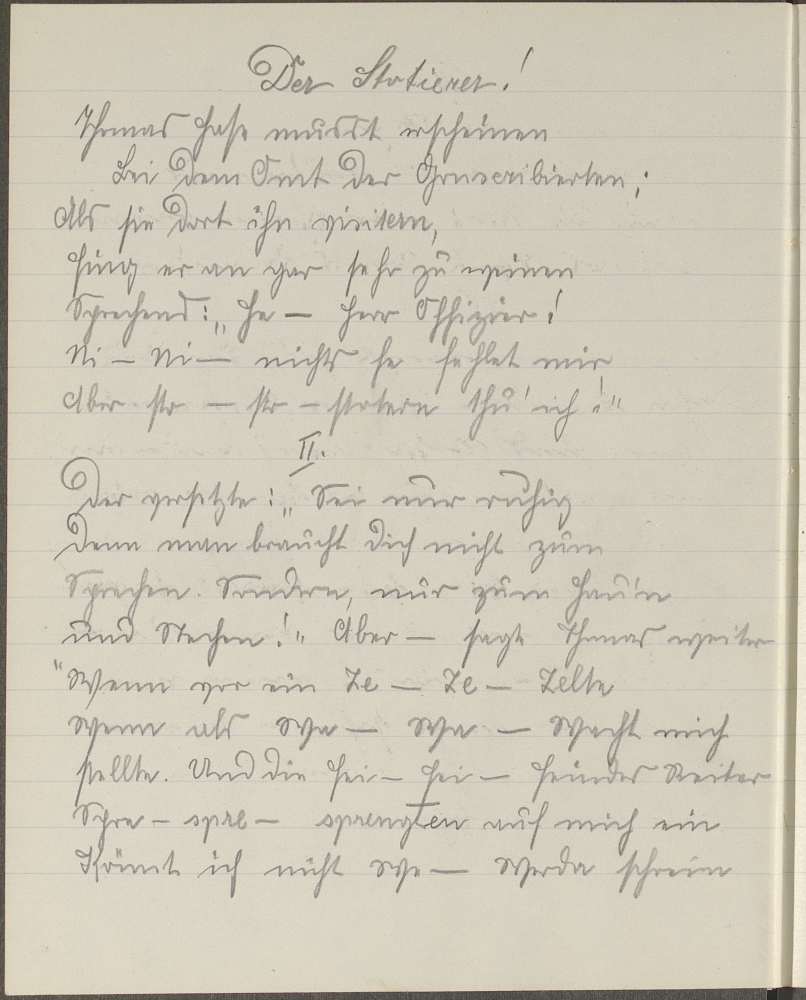 Der Stotierer!
Thomas Hase musst erscheinen
Bei dem Amt der
Als sie dort ihn visitern,
Fing er an gar sehr zu weinen
Sprechend: „He — Herr Offizier!
Ni — Ni — nichts fe fehlet mir
Aber sto — sto — stotern thu' ich!"
II.
Der versetzte: „Sei nur ruhig
Denn man braucht dich nicht zum
Sprechen. Sondern, nur zum Hau'n
und Stechen!" Aber — sagte Thomas weiter
"Wenn vor ein Ze — Ze — Zelte
Wenn als Wa — Wa — Wacht mich
stellte. Und die Fei — Fei — Feindes Reiter
Spre — spre — sprengten auf mich ein
Könnt ich nicht We — Werda schrein